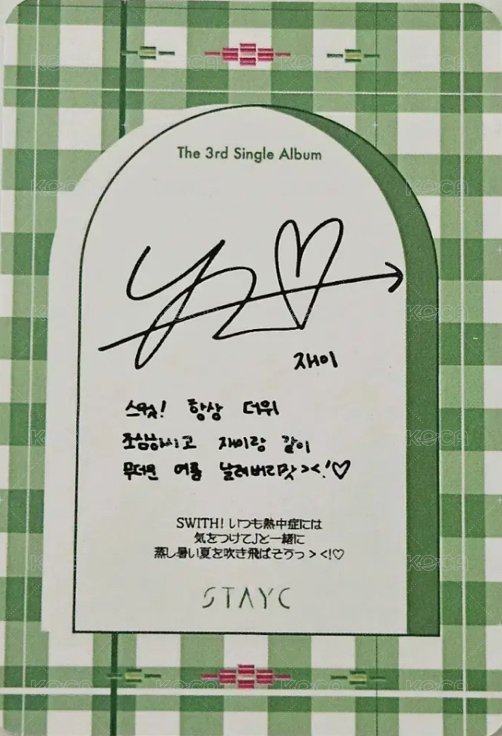 The 3rd Single Album
재이
스윗! 항상 더위
조심하시고 재이랑 같이
무더운 여름 날려버리잣><!♡
SWITH! いつも熱中症には
気をつけてJと一緒に
蒸し暑い夏を吹き飛ばそうっ><!♡
STAYC